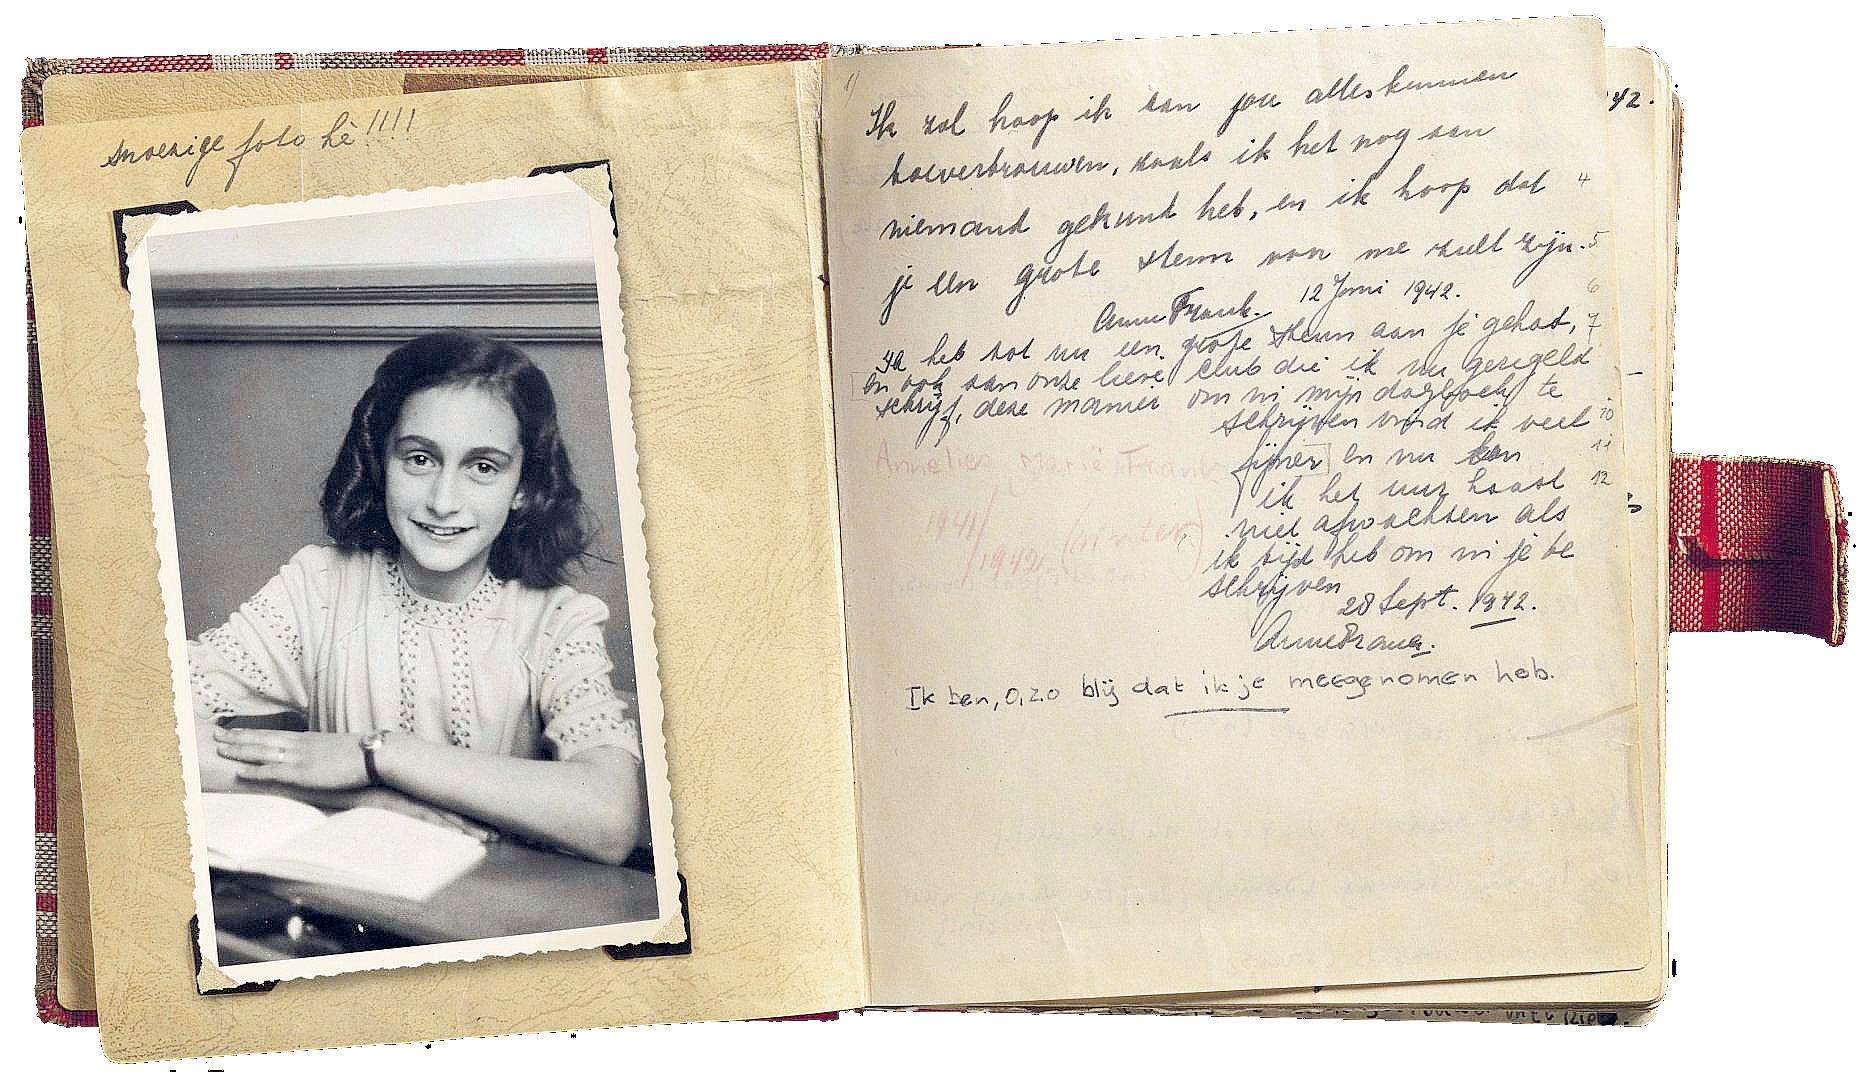 snoezige foto hè!!!!
Ik zal hoop ik aan jou alles kunnen
toevertrouwen, zoals ik het nog aan
niemand gekund heb, en ik hoop dat
je een grote steun voor me zult zijn.
Anne Frank. 12 Juni 1942.
Ik heb tot nu een grote steun aan je gehad,
en ook aan onze lieve club die ik nu geregeld
schrijf, deze manier om in mijn dagboek te
schrijven vind ik veel
fijner en nu kan
ik het uur haast
niet afwachten als
ik tijd heb om in je te
schrijven
28 Sept. 1942.
Anne Frank.
Ik ben, o, zo blij dat ik je meegenomen heb.
42.
4
5
6
7
10
11
12
Annelies Marie Frank
1941/
1942